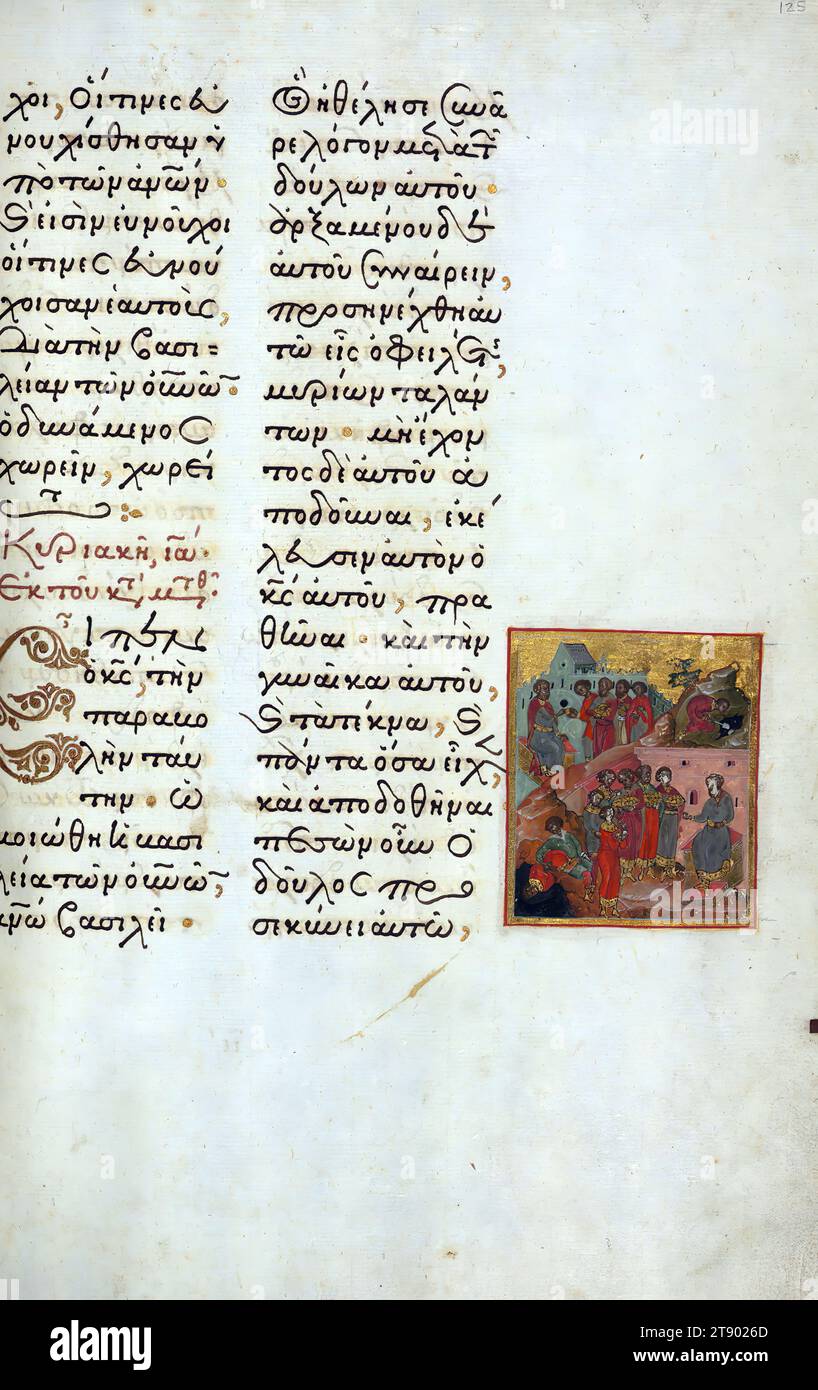 125
χοι, οἵτινες εὐ
νουχίσθησαν ὑ
πὸ τῶν ἀνῶν ·
ϗ εἰσὶν εὐνοῦχοι
οἵτινες εὐνού
χισαν ἑαυτοὺς,
διὰ τὴν βασι =
λείαν τῶν οὐνῶν ·
ὁ δυνάμενος
χωρεῖν, χωρεί
τ
Κυριακῆ, ια ·
Ἐκ τοῦ κτ μτθ ·
Εἶπεν
ὁ κς, τὴν
παραβο
λὴν ταύ
την · ὡ
μοιώθη ἡ βασι
λεία τῶν οὐνῶν,
ἀνῶ βασιλεῖ ·
Ὃς ἠθέλησε συνᾶ
ρε λόγον μετὰ τῶν
δούλων αὐτοῦ ·
ἀρξαμένου δὲ
αὐτοῦ συναίρειν,
προσηνέχθη αὐ
τῶ εἷς ὀφειλέτης,
μυρίων ταλάν
των · μὴ ἔχον
τος δὲ αὐτοῦ ἀ
ποδοῦναι, ἐκέ
λευσεν αὐτὸν ὁ
κς αὐτοῦ, πρα
θῆναι · καὶ τὴν
γυναῖκα αὐτοῦ,
ϗ τὰ τέκνα, ϗ
πάντα ὅσα εἶχε,
καὶ ἀποδοθῆναι
πεσὼν οὖν ὁ
δοῦλος προ
σεκύνει αὐτῶ,
alamy
Image ID: 2T9026D
www.alamy.com